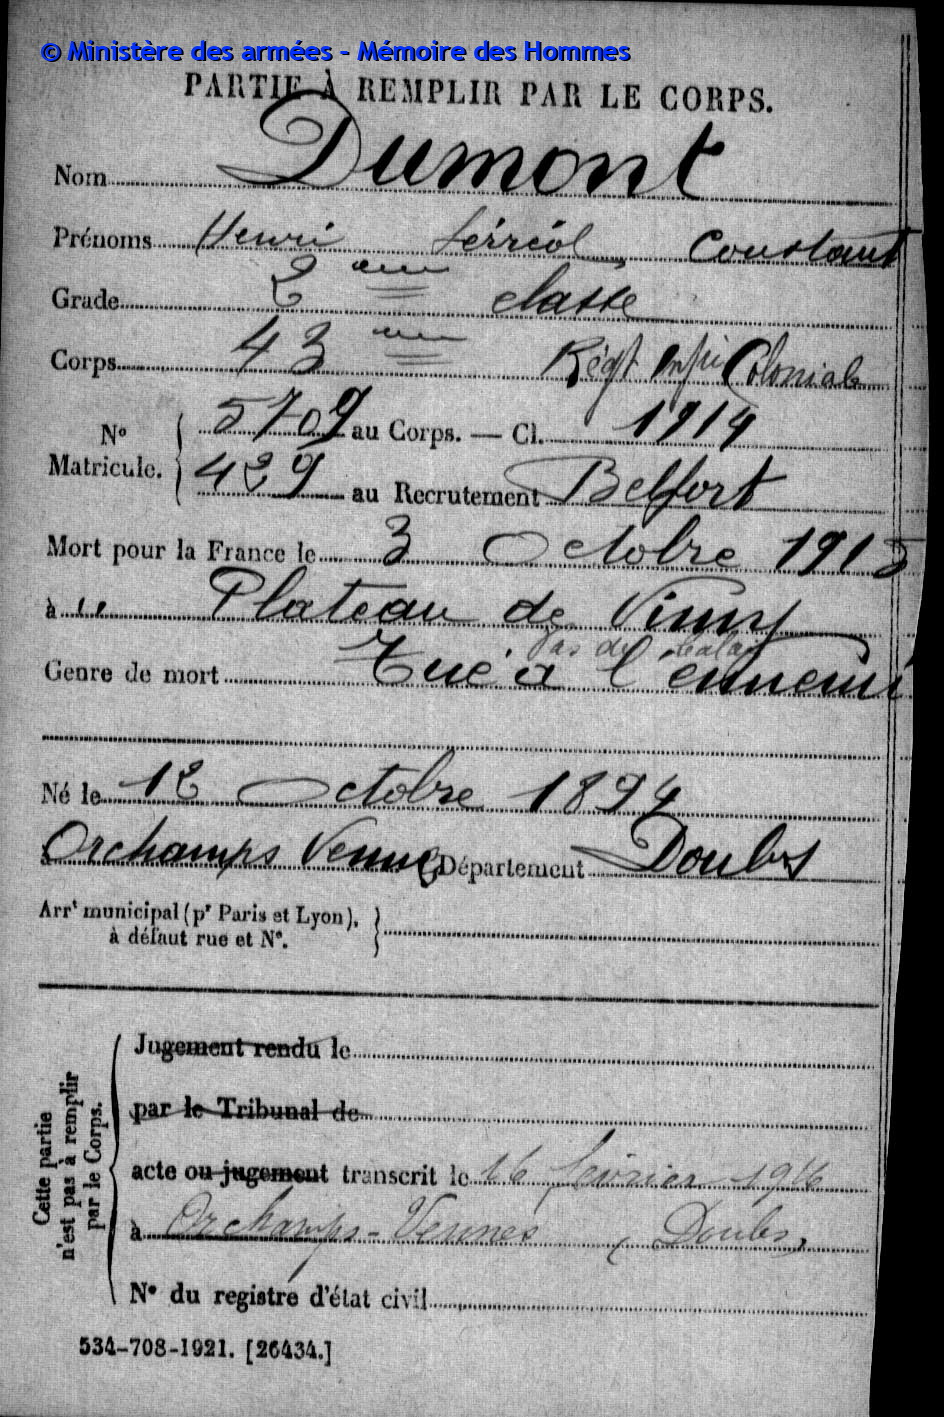 © Ministère des armées - Mémoire des Hommes
PARTIE À REMPLIR PAR LE CORPS.
Nom Dumont
Prénoms Henri Ferréol Constant
Grade 2 eme classe
Corps 43 eme Régt Infie Coloniale
No Matricule. { 5709 au Corps. — Cl. 1914
429 au Recrutement Belfort
Mort pour la France le 3 Octobre 1915
à " Plateau de Vimy
Pas de Calais
Genre de mort Tué à l'ennemi
Né le 12 Octobre 1894
à Orchamps Vennes Département Doubs
Arrt municipal (pr Paris et Lyon),
à défaut rue et No.
Cette partie
n'est pas à remplir
par le Corps.
Jugement rendu le
par le Tribunal de
acte ou jugement transcrit le 16 février 1916
à Orchamps-Vennes (Doubs)
No du registre d'état civil
534-708-1921. [26434.]